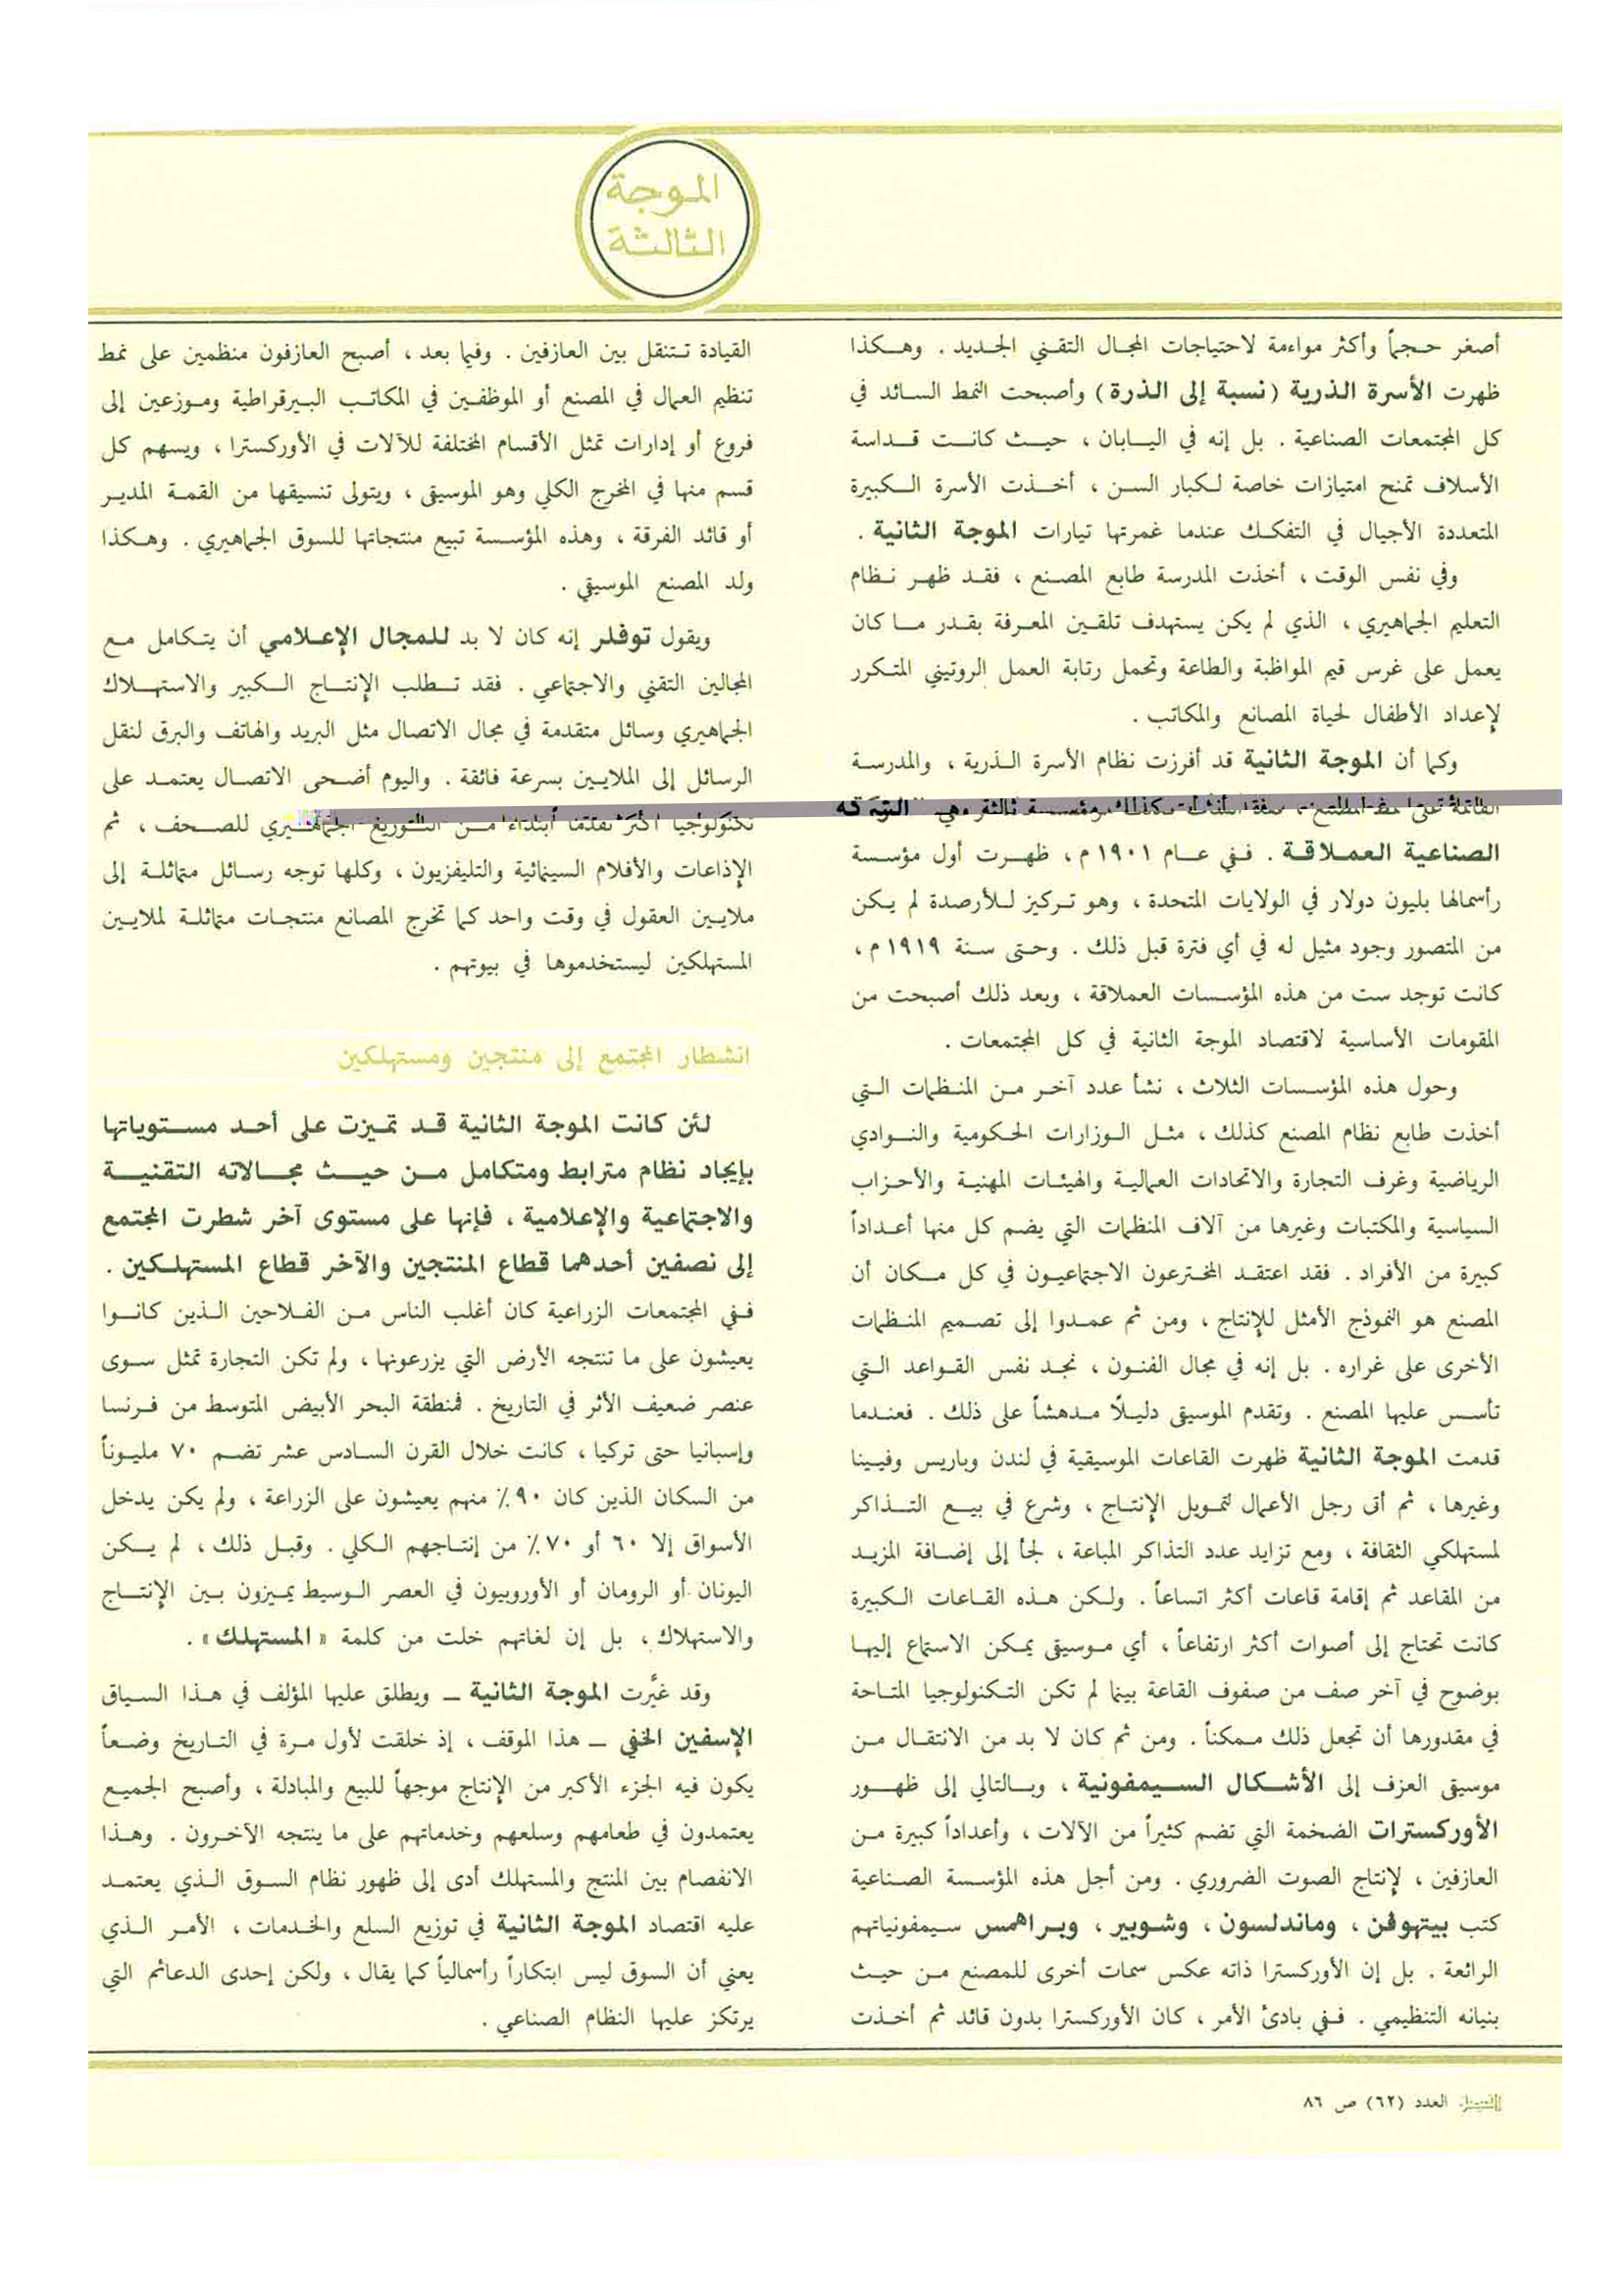 الموجة
الثالثة
أصغر حجماً وأكثر مواءمة لاحتياجات المجال التقني الجديد . وهكذا
ظهرت الأسرة الذرية (نسبة إلى الذرة) وأصبحت النمط السائد في
كل المجتمعات الصناعية . بل إنه في اليابان ، حيث كانت قداسة
الأسلاف تمنح امتيازات خاصة لكبار السن ، أخذت الأسرة الكبيرة
المتعددة الأجيال في التفكك عندما غمرتها تيارات الموجة الثانية .
وفي نفس الوقت ، أخذت المدرسة طابع المصنع ، فقد ظهر نظام
التعليم الجماهيري ، الذي لم يكن يستهدف تلقين المعرفة بقدر ما كان
يعمل على غرس قيم المواظبة والطاعة وتحمل رتابة العمل الروتيني المتكرر
لإعداد الأطفال لحياة المصانع والمكاتب .
وكما أن الموجة الثانية قد أفرزت نظام الأسرة الذرية ، والمدرسة
أنشأت كذلك مؤسسة ثالثة وهي الشركة
الصناعية العملاقة . ففي عام ١٩٠١ م ، ظهرت أول مؤسسة
رأسمالها بليون دولار في الولايات المتحدة ، وهو تركيز للأرصدة لم يكن
من المتصور وجود مثيل له في أي فترة قبل ذلك . وحتى سنة ١٩١٩ م ،
كانت توجد ست من هذه المؤسسات العملاقة ، وبعد ذلك أصبحت من
المقومات الأساسية لاقتصاد الموجة الثانية في كل المجتمعات .
وحول هذه المؤسسات الثلاث ، نشأ عدد آخر من المنظمات التي
أخذت طابع نظام المصنع كذلك ، مثل الوزارات الحكومية والنوادي
الرياضية وغرف التجارة والاتحادات العمالية والهيئات المهنية والأحزاب
السياسية والمكتبات وغيرها من آلاف المنظمات التي يضم كل منها أعداداً
كبيرة من الأفراد . فقد اعتقد المخترعون الاجتماعيون في كل مكان أن
المصنع هو النموذج الأمثل للإنتاج ، ومن ثم عمدوا إلى تصميم المنظمات
الأخرى على غراره . بل إنه في مجال الفنون ، نجد نفس القواعد التي
تأسس عليها المصنع . وتقدم الموسيقى دليلاً مدهشاً على ذلك . فعندما
قدمت الموجة الثانية ظهرت القاعات الموسيقية في لندن وباريس وفيينا
وغيرها ، ثم أتى رجل الأعمال لتمويل الإنتاج ، وشرع في بيع التذاكر
لمستهلكي الثقافة ، ومع تزايد عدد التذاكر المباعة ، لجأ إلى إضافة المزيد
من المقاعد ثم إقامة قاعات أكثر اتساعاً . ولكن هذه القاعات الكبيرة
كانت تحتاج إلى أصوات أكثر ارتفاعاً ، أي موسيقى يمكن الاستماع إليها
بوضوح في آخر صف من صفوف القاعة بينما لم تكن التكنولوجيا المتاحة
في مقدورها أن تجعل ذلك ممكناً . ومن ثم كان لا بد من الانتقال من
موسيقى العزف إلى الأشكال السيمفونية ، وبالتالي إلى ظهور
الأوركسترات الضخمة التي تضم كثيراً من الآلات ، وأعداداً كبيرة من
العازفين ، لإنتاج الصوت الضروري . ومن أجل هذه المؤسسة الصناعية
كتب بيتهوفن ، وماندلسون ، وشوبير ، وبراهمس سيمفونياتهم
الرائعة . بل إن الأوركسترا ذاته عكس سمات أخرى للمصنع من حيث
بنيانه التنظيمي . ففي بادئ الأمر ، كان الأوركسترا بدون قائد ثم أخذت
القيادة تتنقل بين العازفين . وفيما بعد ، أصبح العازفون منظمين على نمط
تنظيم العمال في المصنع أو الموظفين في المكاتب البيرقراطية وموزعين إلى
فروع أو إدارات تمثل الأقسام المختلفة للآلات في الأوركسترا ، ويسهم كل
قسم منها في المخرج الكلي وهو الموسيقى ، ويتولى تنسيقها من القمة المدير
أو قائد الفرقة ، وهذه المؤسسة تبيع منتجاتها للسوق الجماهيري . وهكذا
ولد المصنع الموسيقي .
ويقول توفلر إنه كان لا بد للمجال الإعلامي أن يتكامل مع
المجالين التقني والاجتماعي . فقد تطلب الإنتاج الكبير والاستهلاك
الجماهيري وسائل متقدمة في مجال الاتصال مثل البريد والهاتف والبرق لنقل
الرسائل إلى الملايين بسرعة فائقة . واليوم أضحى الاتصال يعتمد على
تكنولوجيا أكثر تقدماً ابتداء من التوزيع الجماهيري للصحف ، ثم
الإذاعات والأفلام السينمائية والتليفزيون ، وكلها توجه رسائل متماثلة إلى
ملايين العقول في وقت واحد كما تخرج المصانع منتجات متماثلة لملايين
المستهلكين ليستخدموها في بيوتهم .
انشطار المجتمع إلى منتجين ومستهلكين
لئن كانت الموجة الثانية قد تميزت على أحد مستوياتها
بإيجاد نظام مترابط ومتكامل من حيث مجالاته التقنية
والاجتماعية والإعلامية ، فإنها على مستوى آخر شطرت المجتمع
إلى نصفين أحدهما قطاع المنتجين والآخر قطاع المستهلكين .
ففي المجتمعات الزراعية كان أغلب الناس من الفلاحين الذين كانوا
يعيشون على ما تنتجه الأرض التي يزرعونها ، ولم تكن التجارة تمثل سوى
عنصر ضعيف الأثر في التاريخ . فمنطقة البحر الأبيض المتوسط من فرنسا
وإسبانيا حتى تركيا ، كانت خلال القرن السادس عشر تضم ٧٠ مليوناً
من السكان الذين كان ٩٠٪ منهم يعيشون على الزراعة ، ولم يكن يدخل
الأسواق إلا ٦٠ أو ٧٠٪ من إنتاجهم الكلي . وقبل ذلك ، لم يكن
اليونان أو الرومان أو الأوروبيون في العصر الوسيط يميزون بين الإنتاج
والاستهلاك ، بل إن لغاتهم خلت من كلمة «المستهلك» .
وقد غيَّرت الموجة الثانية ــ ويطلق عليها المؤلف في هذا السياق
الإسفين الخفي ــ هذا الموقف ، إذ خلقت لأول مرة في التاريخ وضعاً
يكون فيه الجزء الأكبر من الإنتاج موجهاً للبيع والمبادلة ، وأصبح الجميع
يعتمدون في طعامهم وسلعهم وخدماتهم على ما ينتجه الآخرون . وهذا
الانفصام بين المنتج والمستهلك أدى إلى ظهور نظام السوق الذي يعتمد
عليه اقتصاد الموجة الثانية في توزيع السلع والخدمات ، الأمر الذي
يعني أن السوق ليس ابتكاراً رأسمالياً كما يقال ، ولكن إحدى الدعائم التي
يرتكز عليها النظام الصناعي .
العدد (٦٢) ص ٨٦